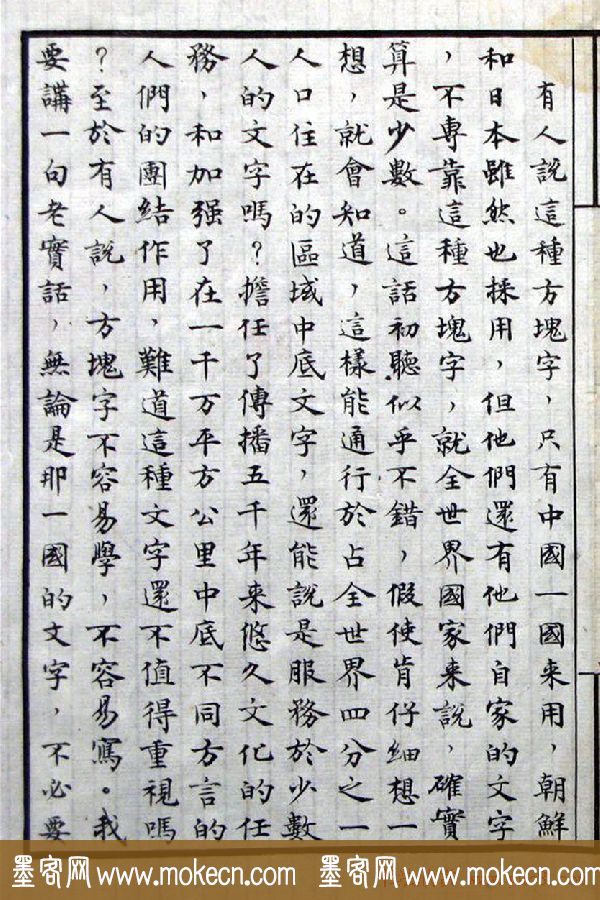 有人說這種方塊字，只有中國一國來用，朝鮮
和日本雖然也採用，但他們還有他們自家的文字
，不專靠這種方塊字，就全世界國家來說，確實
算是少數。這話初聽似乎不錯，假使肯仔細想一
想，就會知道，這樣能通行於占全世界四分之一
人口住在的區域中底文字，還能說是服務於少數
人的文字嗎？擔任了傳播五千年來悠久文化的任
務，和加强了在一千万平方公里中底不同方言的
人們的團結作用，難道這種文字還不值得重視嗎
？至於有人說，方塊字不容易學，不容易寫。我
要講一句老實話，無論是那一國的文字，不必要
墨客网 www.mokecn.com 墨客网 www.mokecn.com